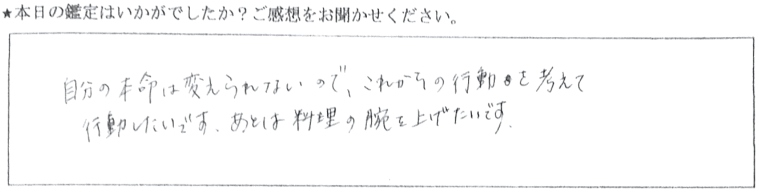 ★本日の鑑定はいかがでしたか？ご感想をお聞かせください。
自分の本命は変えられないので、これからの行動を考えて
行動したいです。あとは料理の腕を上げたいです。